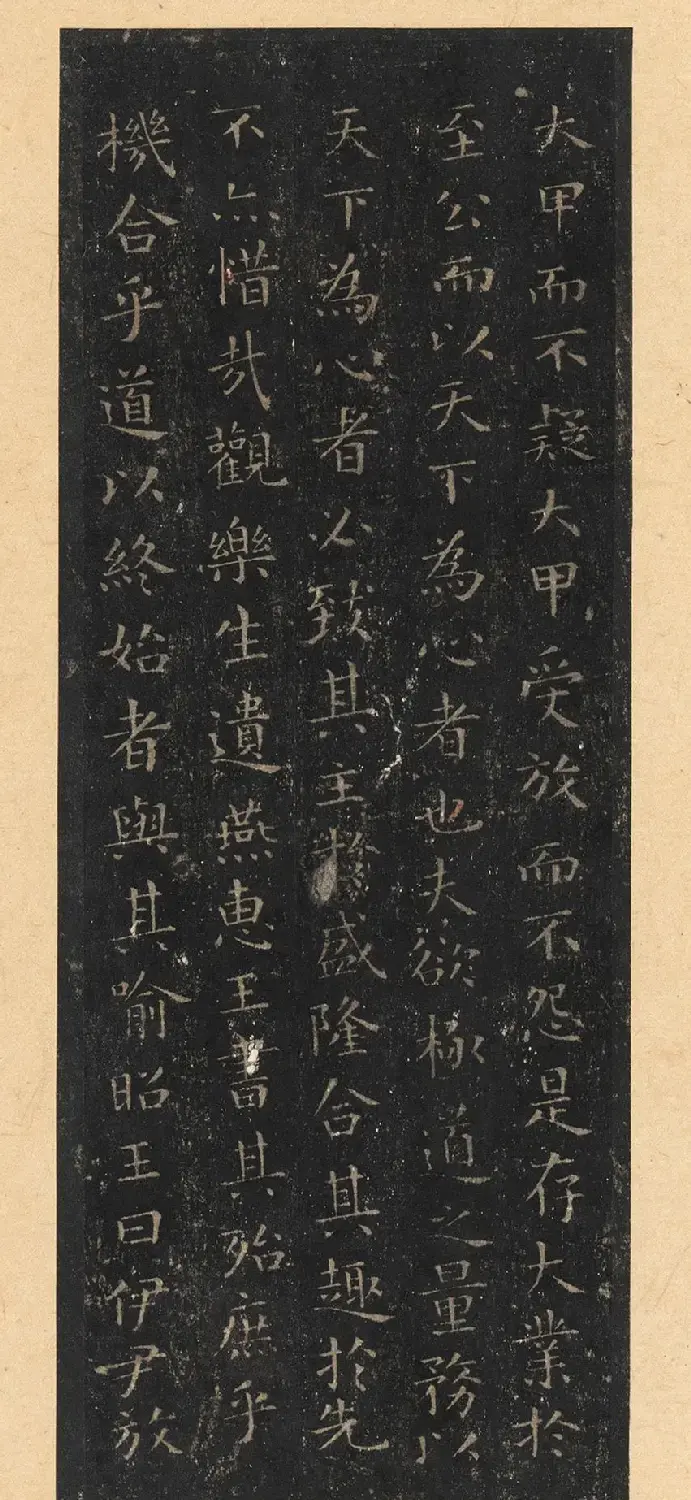 大甲而不疑大甲受放而不怨是存大業於
至公而以天下為心者也夫欲極道之量務以
天下為心者必致其主於盛隆合其趣於先
不亦惜哉觀樂生遺燕惠王書其殆庶乎
機合乎道以終始者與其喻昭王曰伊尹放